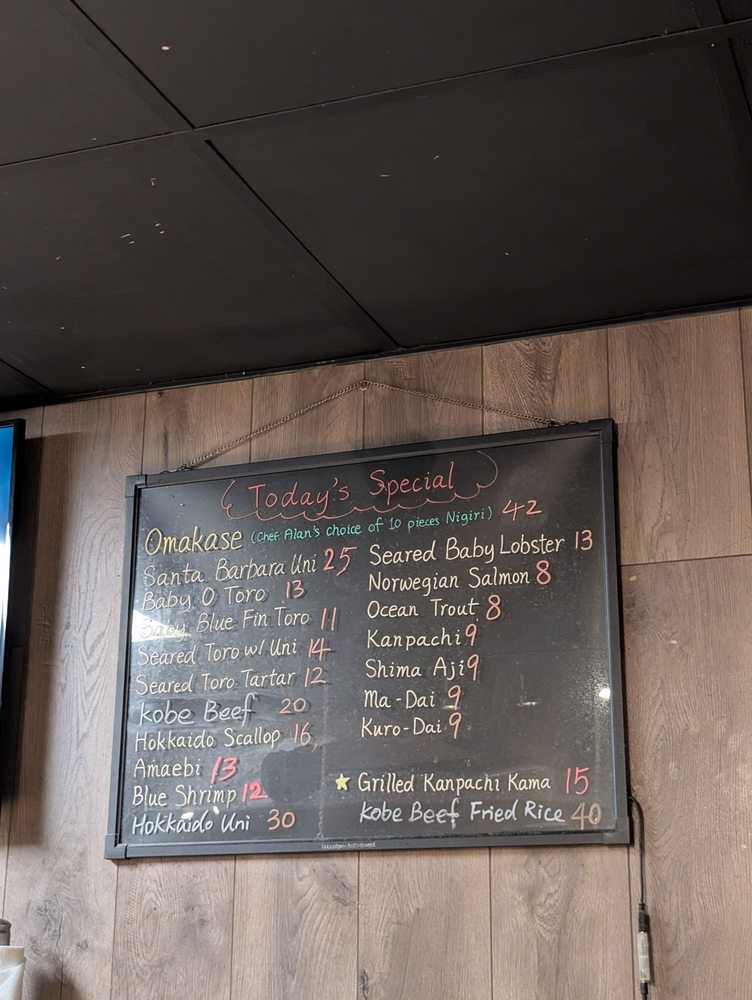 Today's Special
Omakase (Chef Alan's choice of 10 pieces Nigiri) 42
Santa Barbara Uni 25
Baby O Toro 13
Baby Blue Fin Toro 11
Seared Toro w/ Uni 14
Seared Toro Tartar 12
Kobe Beef 20
Hokkaido Scallop 16
Amaebi 13
Blue Shrimp 12
Hokkaido Uni 30
Seared Baby Lobster 13
Norwegian Salmon 8
Ocean Trout 8
Kanpachi 9
Shima Aji 9
Ma-Dai 9
Kuro-Dai 9
Grilled Kanpachi Kama 15
Kobe Beef Fried Rice 40